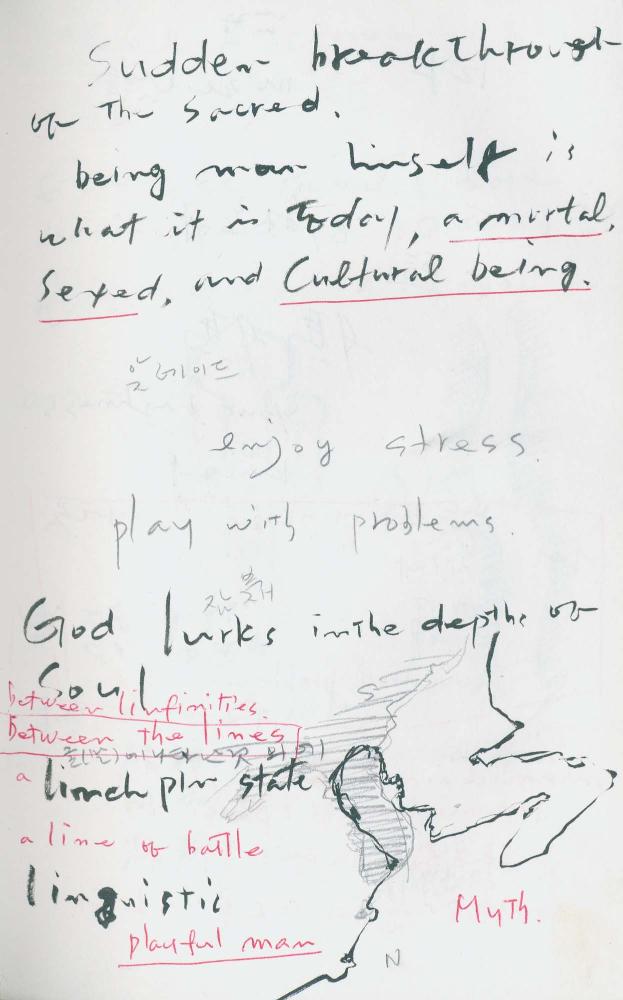 Sudden breakthrough
of the sacred.
being man himself is
what it is today, a mortal,
sexed, and Cultural being.
enjoy stress.
play with problems.
God lurks in the depths of
Soul
between
between the lines
a state
a line of battle
linguistic
playful man
Myth.
N